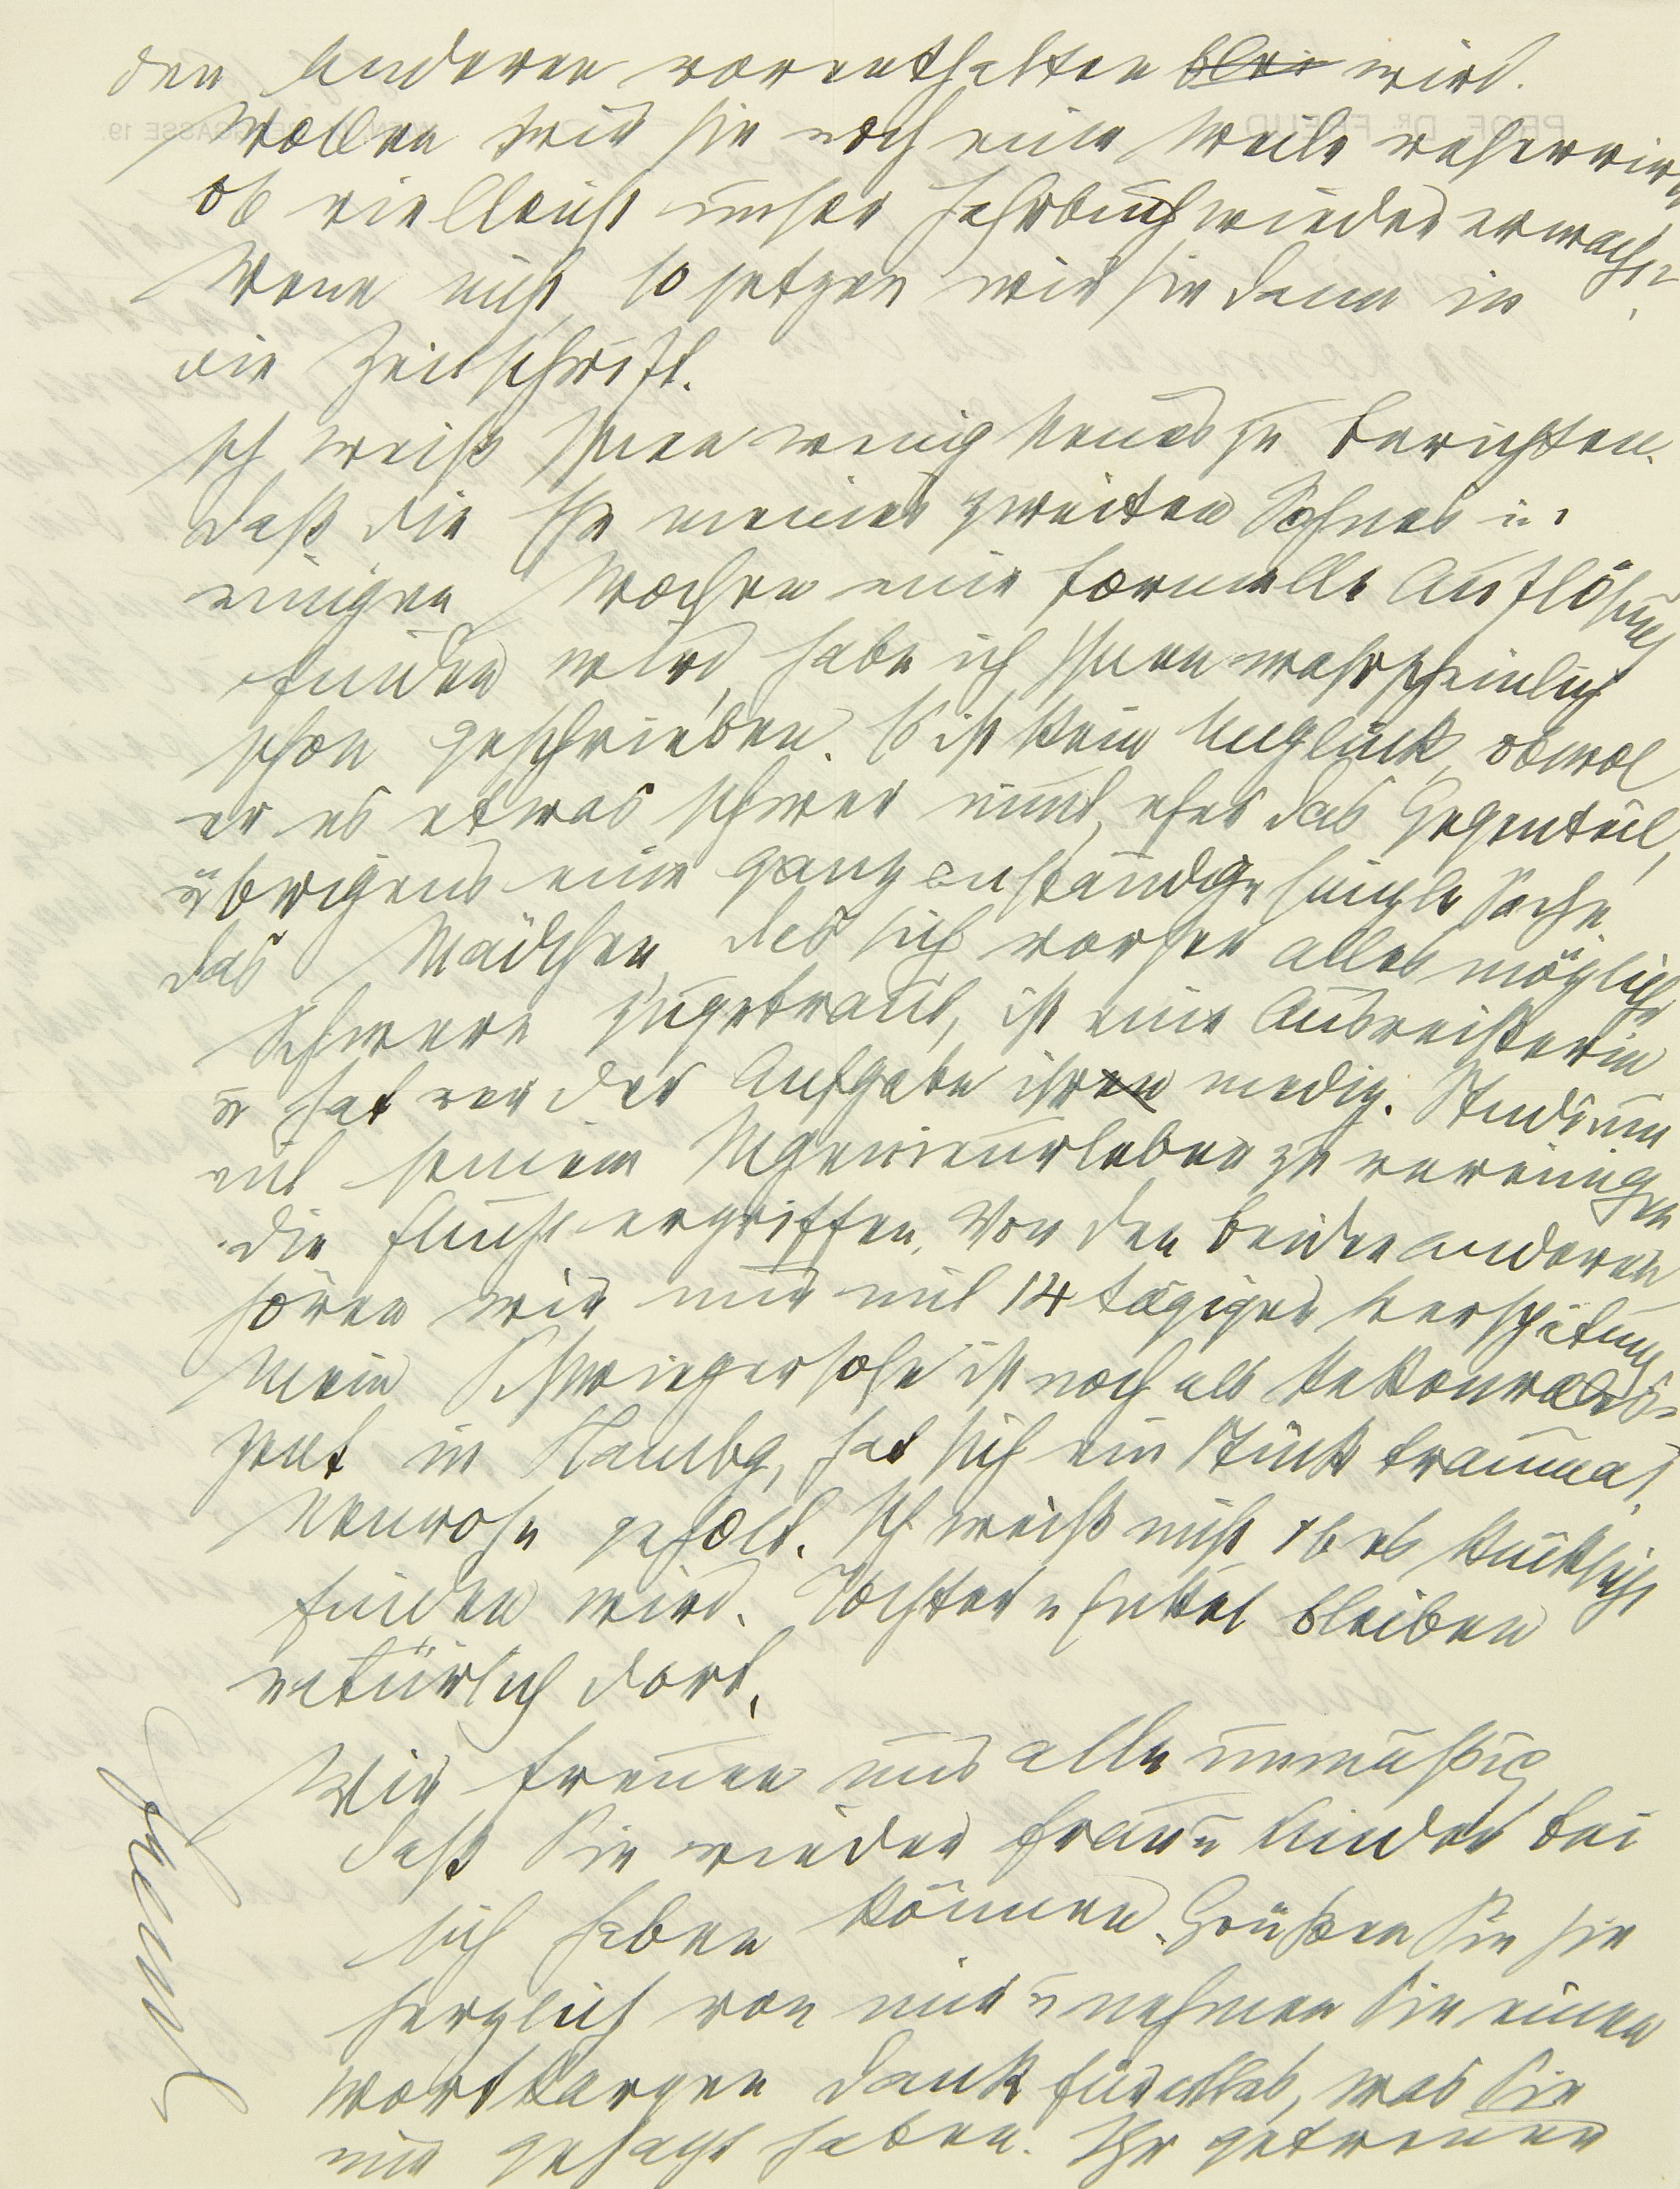 den Anderen vorenthalten blei wird.
Wollen wir sie noch eine Weile reservieren
ob vielleicht unser Jahrbuch wieder erwacht?
Wenn nicht, so setzen wir sie dann in
die Zeitschrift.
Ich weiß Ihnen wenig Neues zu berichten.
Daß die Ehe meines zweiten Sohnes in
einigen Wochen eine formelle Auflösung
finden wird, habe ich Ihnen wahrscheinlich
schon geschrieben. Es ist kein Unglück, obwol
er es etwas schwer nimt, eher das Gegenteil,
übrigens eine ganz anständige simple Sache.
Das Mädchen, das sich vorher alles mögliche
Schwere zugetraut, ist eine Ausreißerin
u hat vor der Aufgabe ihren mediz. Studium
mit seinem Ingenieurleben zu vereinigen
die Flucht ergriffen. Von den beiden anderen
hören wir nur mit 14 tägiger Verspätung
Mein Schwiegersohn ist noch als Rekonvales=
zent in Hambg, hat sich ein Stück traumat.
Neurose geholt. Ich weiß nicht ob es Rücksicht
finden wird. Tochter u Enkel bleiben
natürlich dort.
Wir freuen uns alle unmäßig,
daß Sie wieder Frau u Kinder bei
sich haben können. Grüßen Sie sie
herzlich von mir u nehmen Sie einen
wortkargen Dank für alles, was Sie
mir gesagt haben. Ihr getreuer
Freud